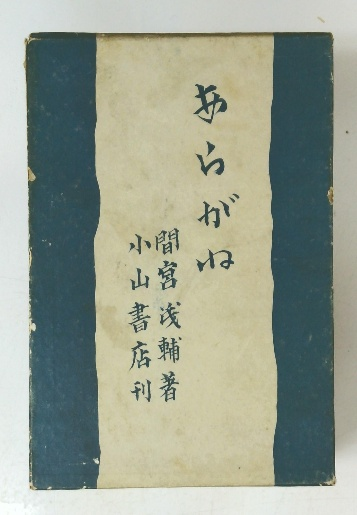 あらがね
間宮浅輔著
小山書店刊